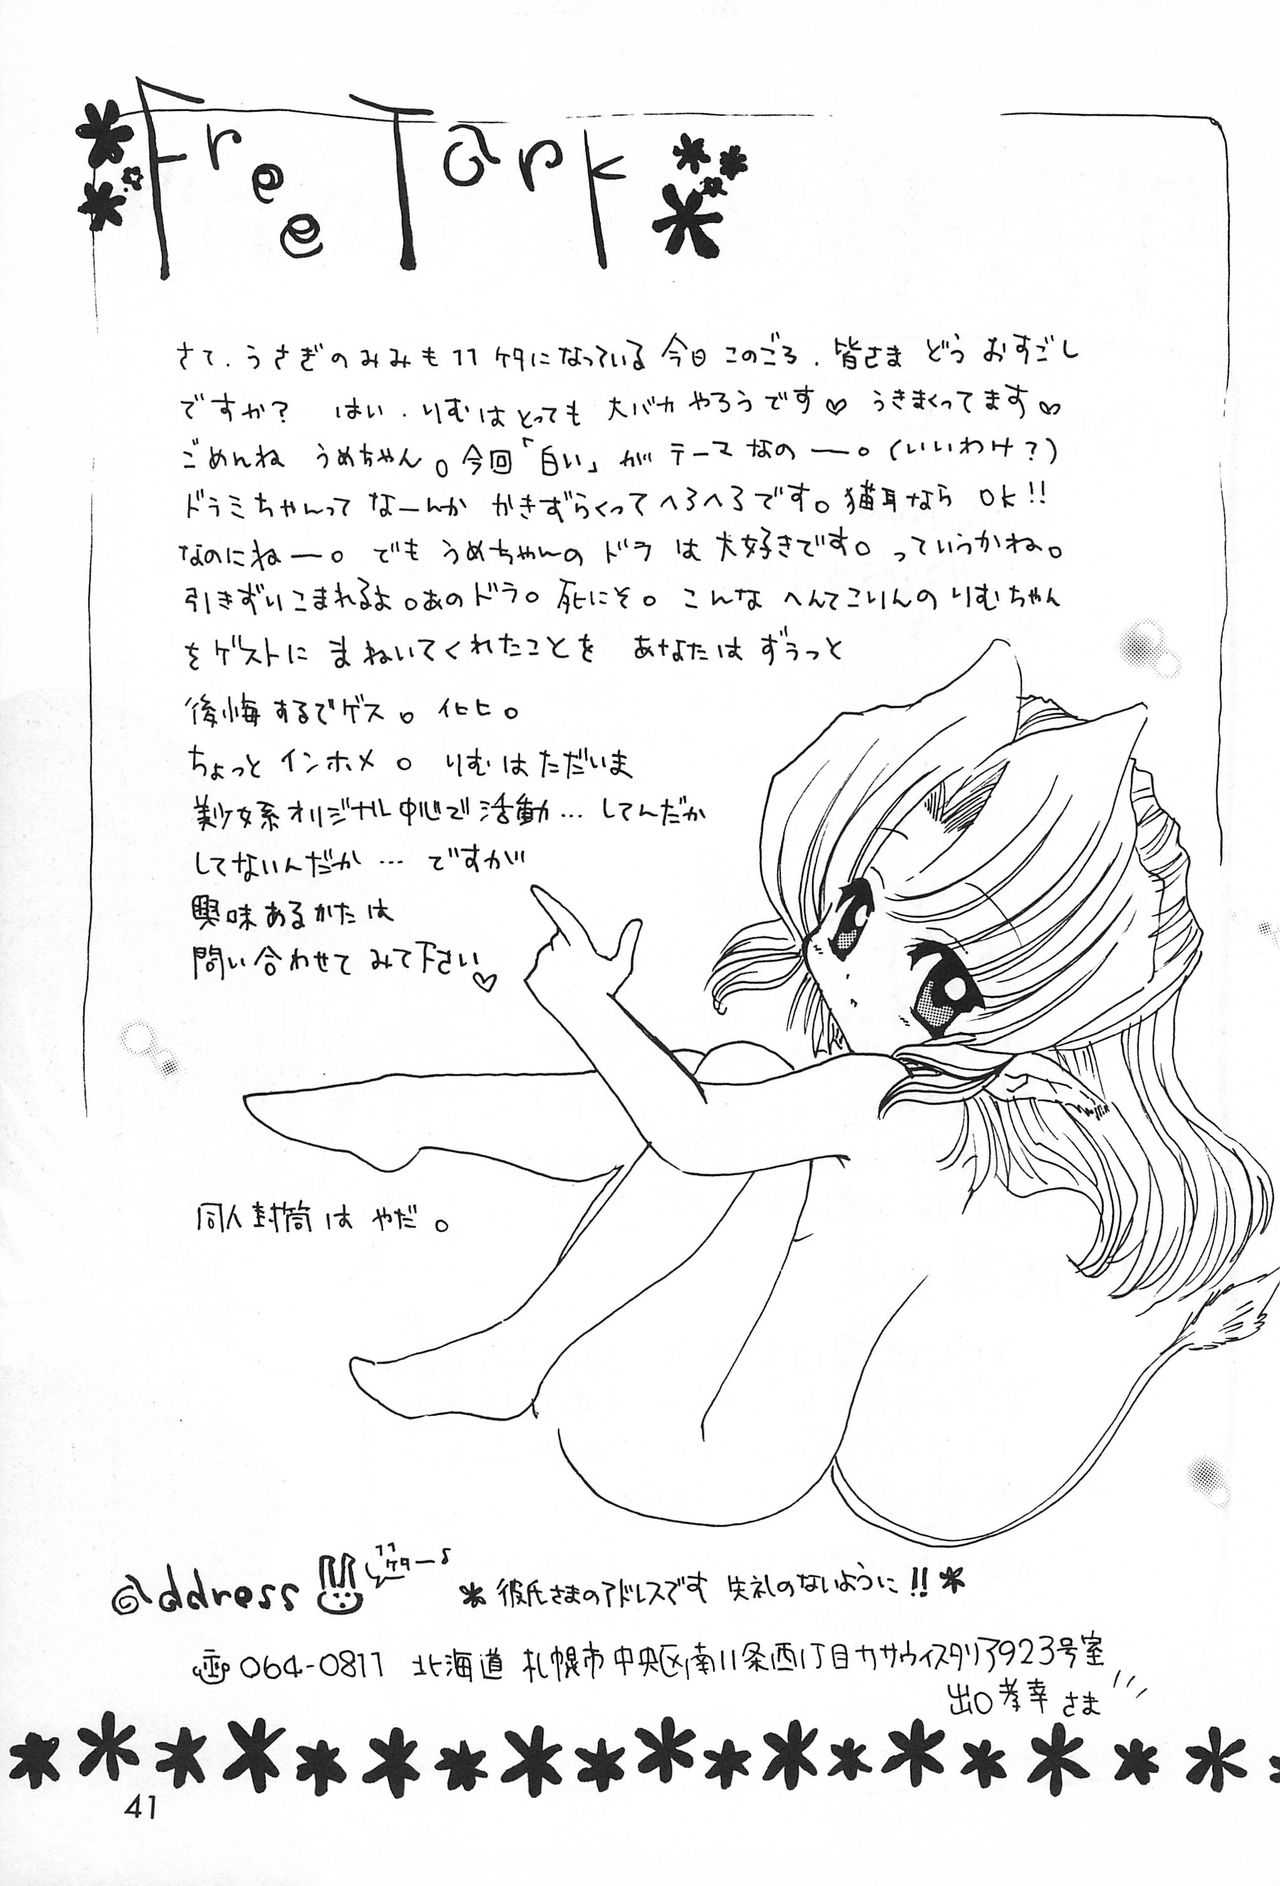 Free Tark
さて、うさぎのみみも11ケタになっている今日このごろ、皆さまどうおすごし
ですか? はい、りむはとっても大バカやろうです♡うきまくってます♡
ごめんねうめちゃん。今回「白い」がテーマなのー。(いいわけ?)
ドラミちゃんってなーんかかきずらくってへろへろです。猫耳ならOK!!
なのにねー。でもうめちゃんのドラは大好きです。っていうかね。
引きずいこまれるよ。あのドラ。死にそ。こんなへんてこりんのりむちゃん
をゲストにまねいてくれたことをあなたはずうっと
後悔するでゲス。イヒヒ。
ちょっとインホメ。りむはただいま
美少女系オリジナル中心で活動…してんだか
してないんだか…ですが
興味あるかたは
問い合わせてみて下さい♡
同人封筒はやだ。
@ddress
11ケター♪
*彼氏さまのアドレスです失礼のないように!!*
〒064-0811 北海道札幌市中央区南11条西1丁目カサウィスタリア923号室
出口孝幸さま
41